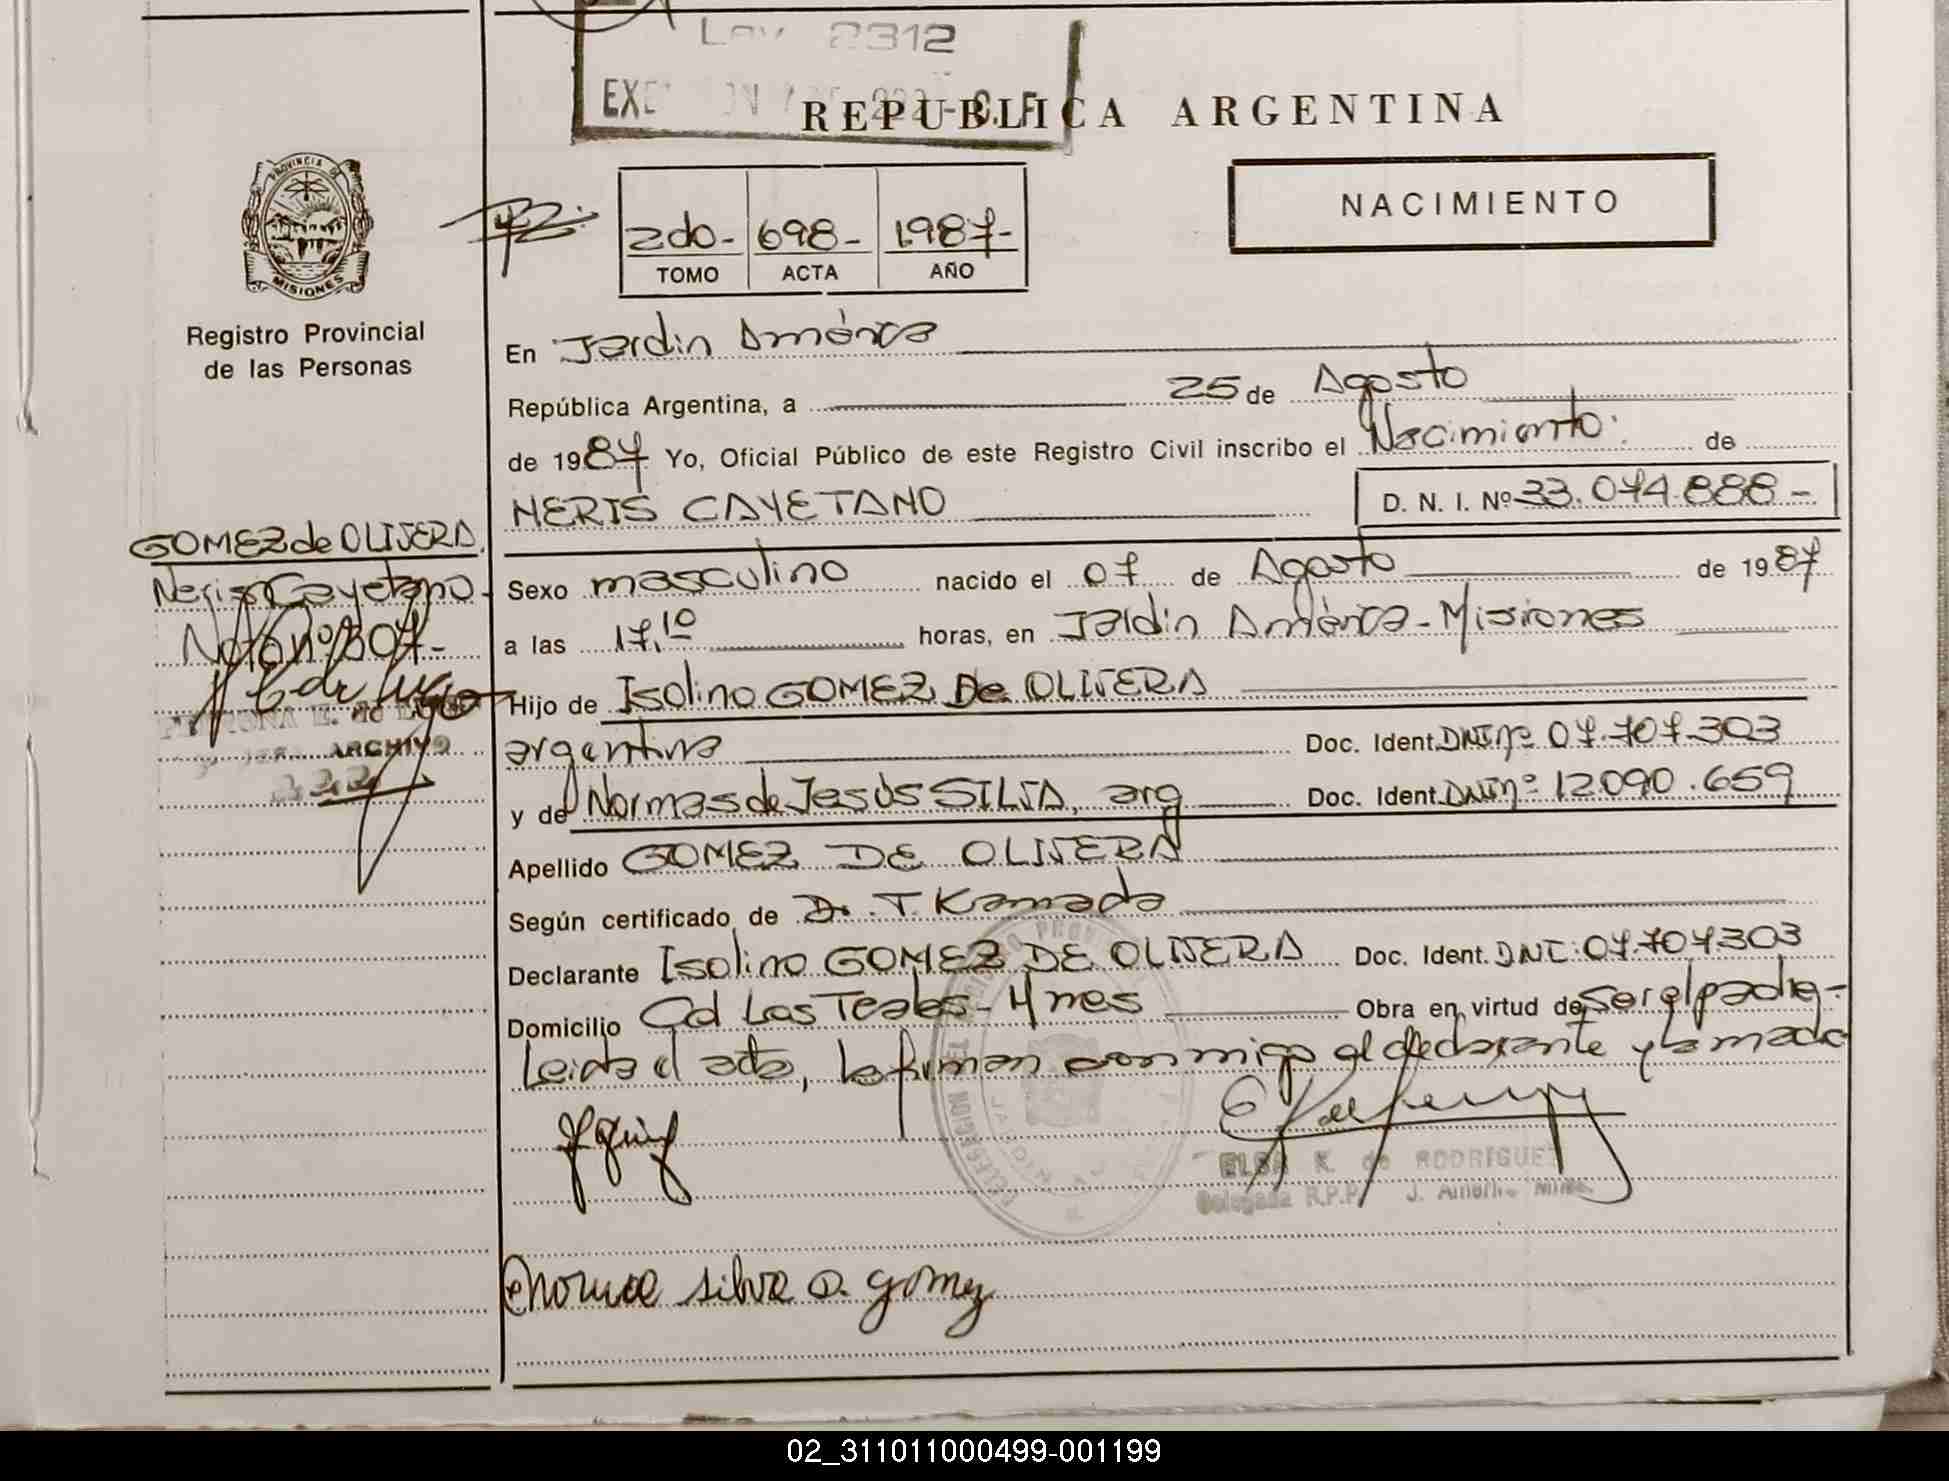 Ley 2312
REPUBLICA ARGENTINA
PROVINCIA DE
MISIONES
NACIMIENTO
2do- 698- 1987-
TOMO ACTA AÑO
Registro Provincial
de las Personas
En Jardin América
República Argentina, a 25 de Agosto
de 1987 Yo, Oficial Público de este Registro Civil inscribo el Nacimiento: de
NERIS CAYETANO D. N. I. Nº 33.074.888-
GOMEZ de OLIVERA.
Neris Cayetano-
Nota nº 307-
ARCHIVO
Sexo masculino nacido el 07 de Agosto de 1987
a las 17,10 horas, en Jardin América-Misiones
Hijo de Isolino GOMEZ De OLIVERA
argentina Doc. Ident. DNI nº 07.707.303
y de Normas de Jesús SILVA, arg Doc. Ident. DNI nº 12.090.659
Apellido GOMEZ DE OLIVERA
Según certificado de Dr. T. Kamada
Declarante Isolino GOMEZ DE OLIVERA Doc. Ident. DNI: 07.707.303
Domicilio Cd Las Teales-Mnes Obra en virtud de ser el padre-
Leida el acta, la firman conmigo el declarante y la madre
ELSA K. de RODRIGUEZ
Delegada R.P.P.
Norma silva D. gomez
02_311011000499-001199